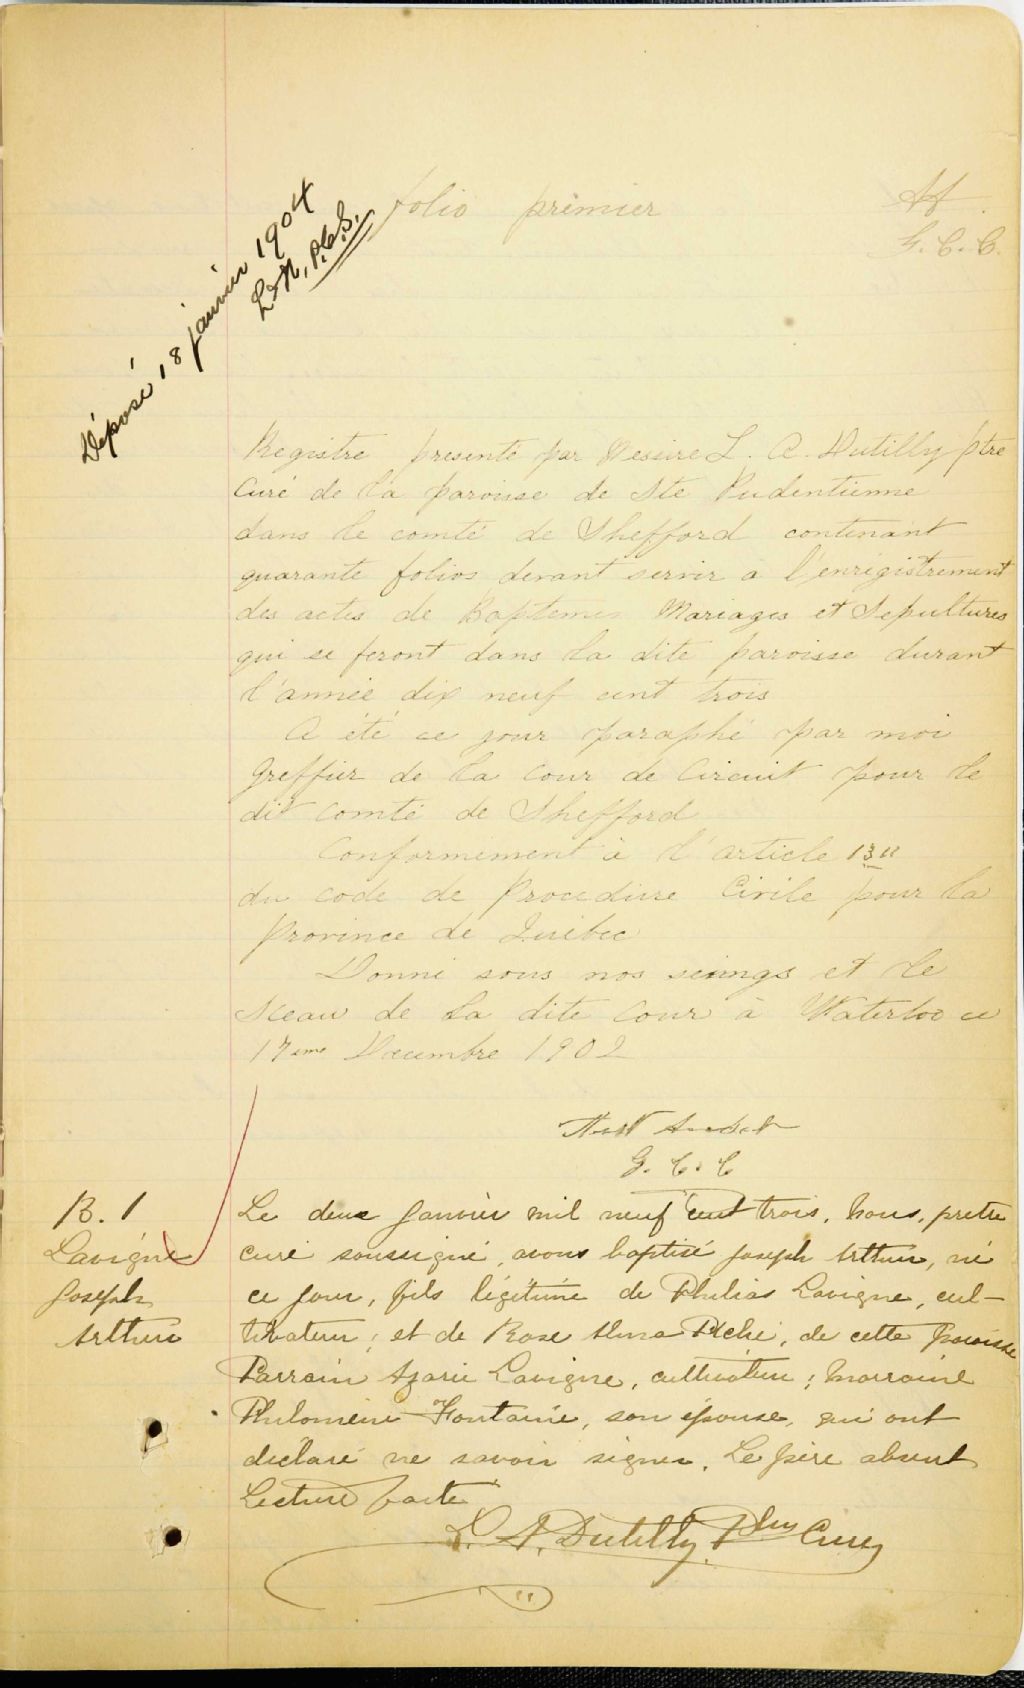 Déposé 18 janvier 1904
folio premier
G. C. C.
Registre présenté par Messire L. A. Dutilly ptre
Curé de la paroisse de Ste Pudentienne
dans le comté de Shefford contenant
quarante folios devant servir à l'enrégistrement
des actes de Baptemes Mariages et Sepultures
qui se feront dans la dite paroisse durant
l'année dix neuf cent trois
A été ce jour paraphé par moi
Greffier de la Cour de Circuit pour le
dit comté de Shefford
Conformement à l'article 1311
du code de Procedure Civile pour la
Province de Québec
Donné sous nos seings et le
Sceau de la dite Cour à Waterloo ce
17eme Decembre 1902
G. C. C
B. 1
Lavigne
Joseph
Arthur
Le deux Janvier mil neuf cent trois, Nous, prêtre
curé soussigné, avons baptisé Joseph Arthur, né
ce jour, fils légitime de Philias Lavigne, cul-
tivateur, et de Rose Alma Piché, de cette paroisse
Parrain Azarie Lavigne, cultivateur; marraine
Philomène Fontaine, son épouse, qui ont
déclaré ne savoir signer. Le père absent
Lecture faite
L. A. Dutilly, Ptre Curé